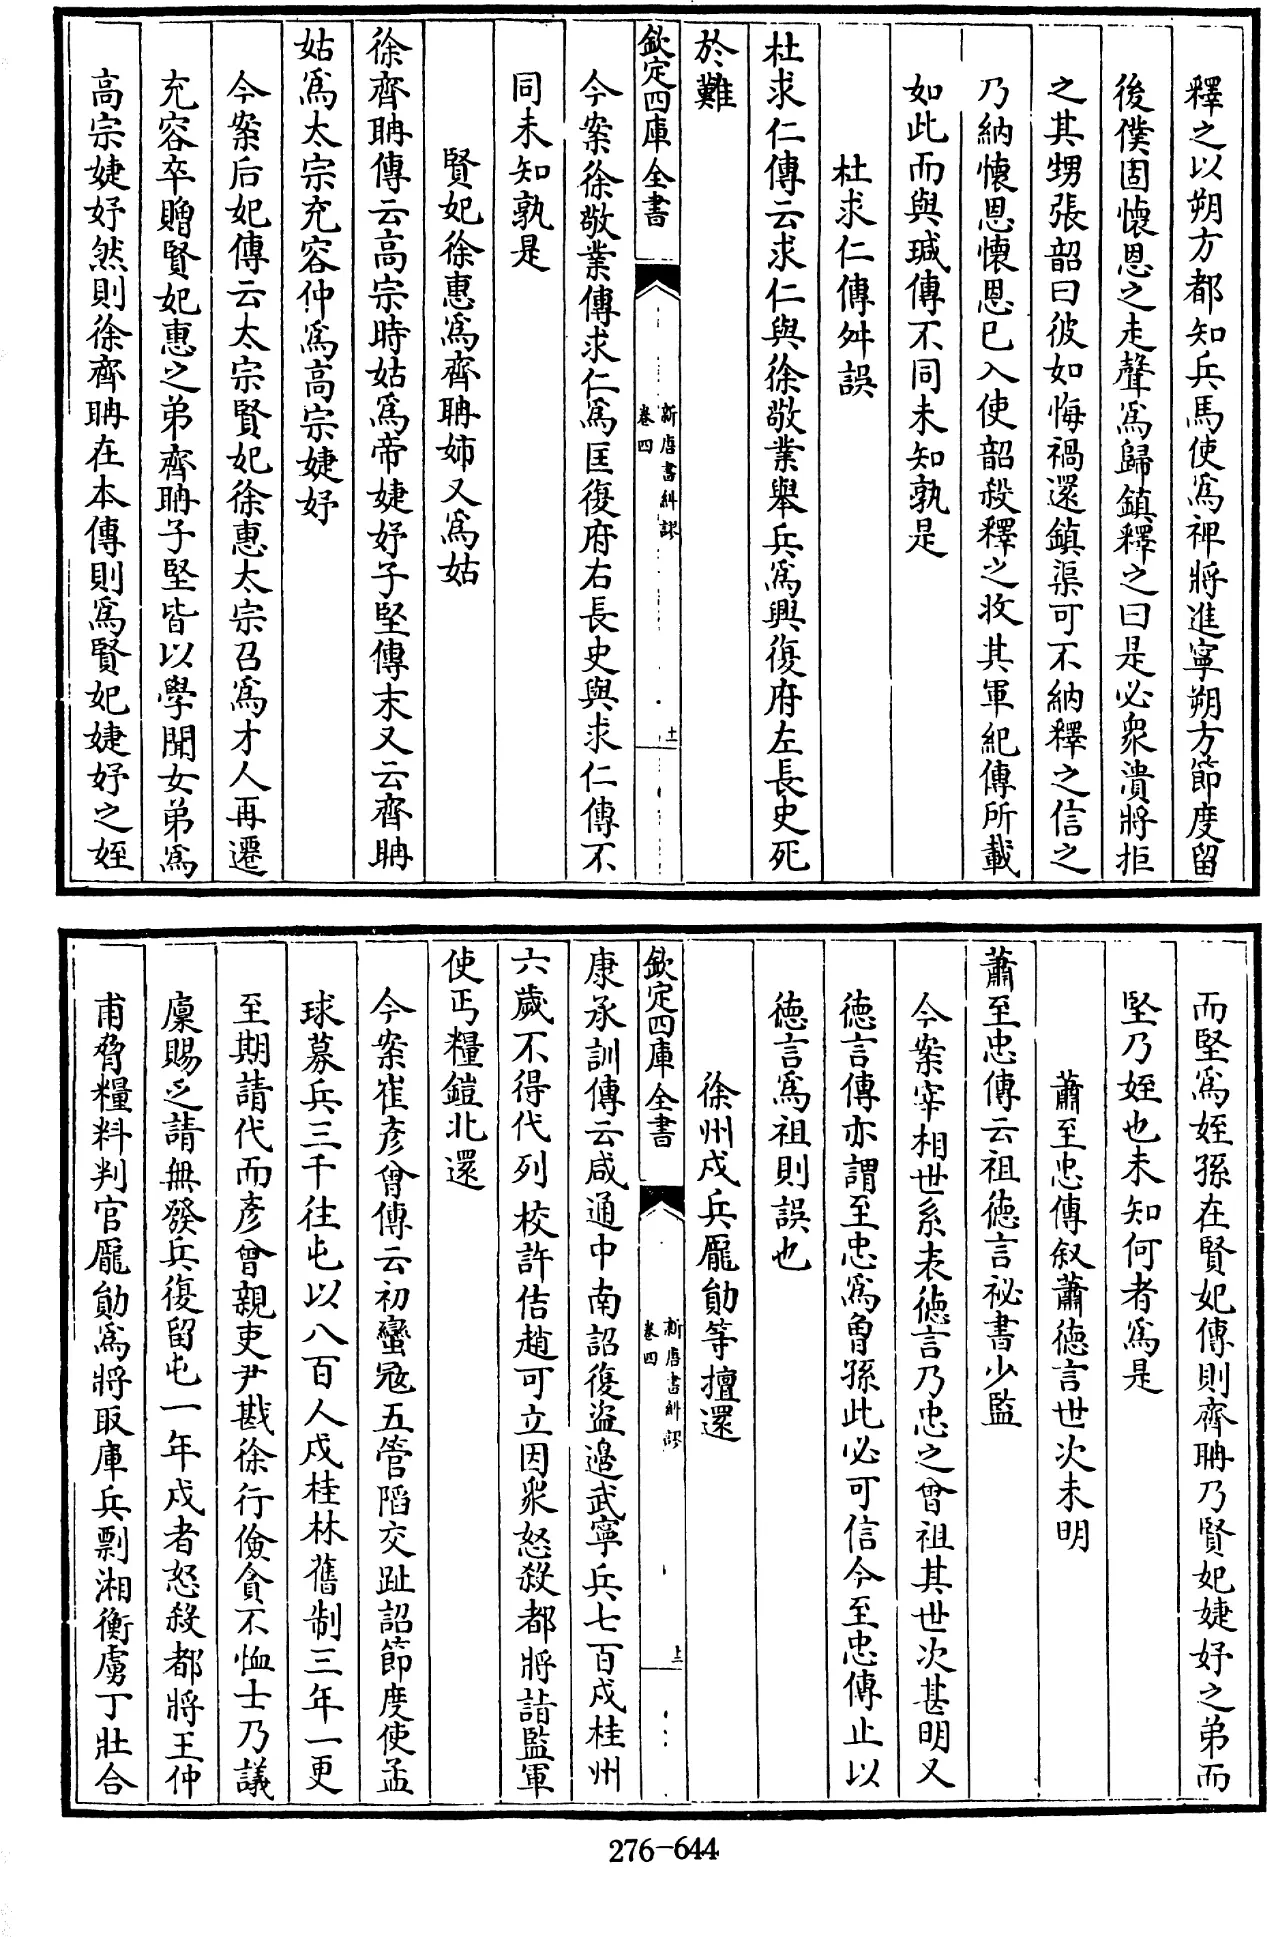 釋之以朔方都知兵馬使為裨將進寧朔方節度留
後僕固懷恩之走聲為歸鎮釋之曰是必衆潰將拒
之其甥張韶曰彼如悔禍還鎮渠可不納釋之信之
乃納懷恩懷恩已入使韶殺釋之收其軍紀傳所載
如此而與瑊傳不同未知孰是
杜求仁傳舛誤
杜求仁傳云求仁與徐敬業舉兵為興復府左長史死
於難
欽定四庫全書
新唐書糾謬
卷四
土
今案徐敬業傳求仁為匡復府右長史與求仁傳不
同未知孰是
賢妃徐惠為齊聃姉又為姑
徐齊聃傳云高宗時姑為帝婕妤子堅傳末又云齊聃
姑為太宗充容仲為高宗婕妤
今案后妃傳云太宗賢妃徐惠太宗召為才人再遷
充容卒贈賢妃惠之弟齊聃子堅皆以學聞女弟為
高宗婕妤然則徐齊聃在本傳則為賢妃婕妤之姪
而堅為姪孫在賢妃傳則齊聃乃賢妃婕妤之弟而
堅乃姪也未知何者為是
蕭至忠傳叙蕭徳言世次未明
蕭至忠傳云祖徳言祕書少監
今案宰相世系表徳言乃忠之曾祖其世次甚明又
徳言傳亦謂至忠為曾孫此必可信今至忠傳止以
徳言為祖則誤也
徐州戍兵龎勛等擅還
欽定四庫全書
新唐書糾謬
卷四
上
康承訓傳云咸通中南詔復盗邉武寧兵七百戍桂州
六歲不得代列校許佶趙可立因衆怒殺都將詣監軍
使丐糧鎧北還
今案崔彦曾傳云初蠻寇五管陷交趾詔節度使孟
球募兵三千往屯以八百人戍桂林舊制三年一更
至期請代而彦曾親吏尹戡徐行儉貪不恤士乃議
廪賜乏請無發兵復留屯一年戍者怒殺都將王仲
甫脅糧料判官龎勛為將取庫兵剽湘衡虜丁壯合
276-644